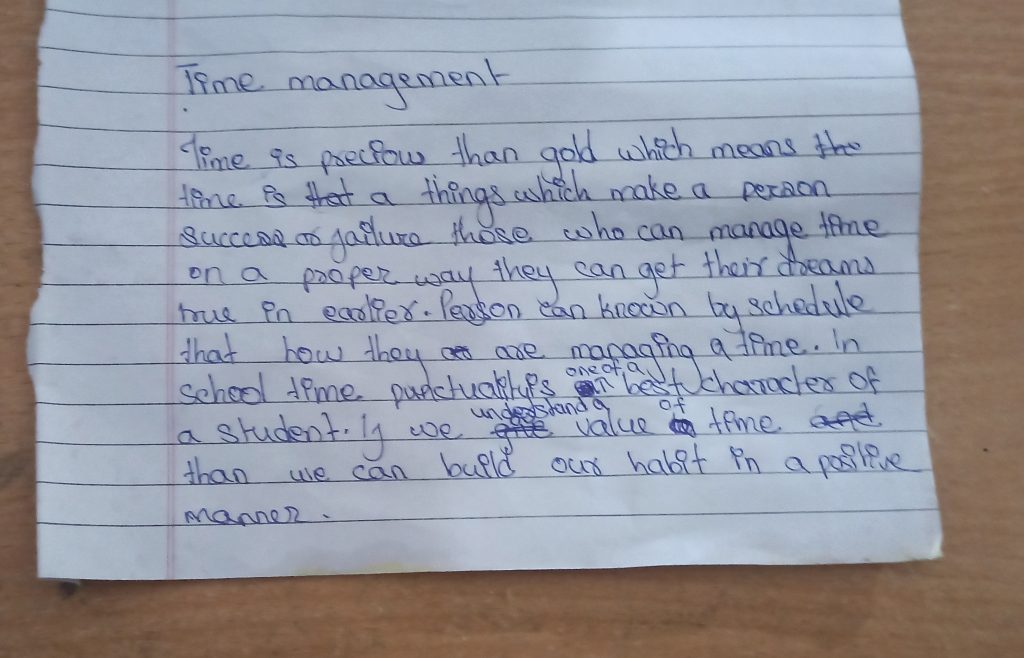 Time management
Time is precious than gold which means the
time is that a things which make a person
success or failure those who can manage time
on a proper way they can get their dreams
true in earlier. Person can known by schedule
that how they are managing a time. In
school time punctuality is one of a best character of
a student. If we understand a value of time
than we can build our habit in a positive
manner.